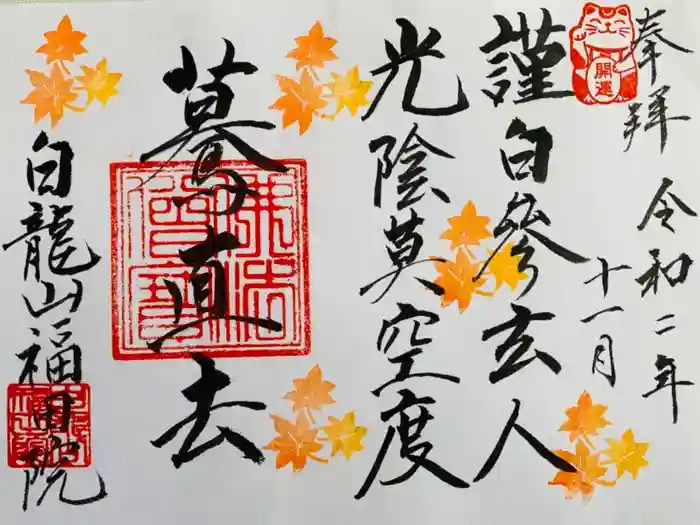 奉拝
令和二年
十一月
開運
謹白參玄人
光陰莫空度
驀直去
佛法僧寶
白龍山福田院